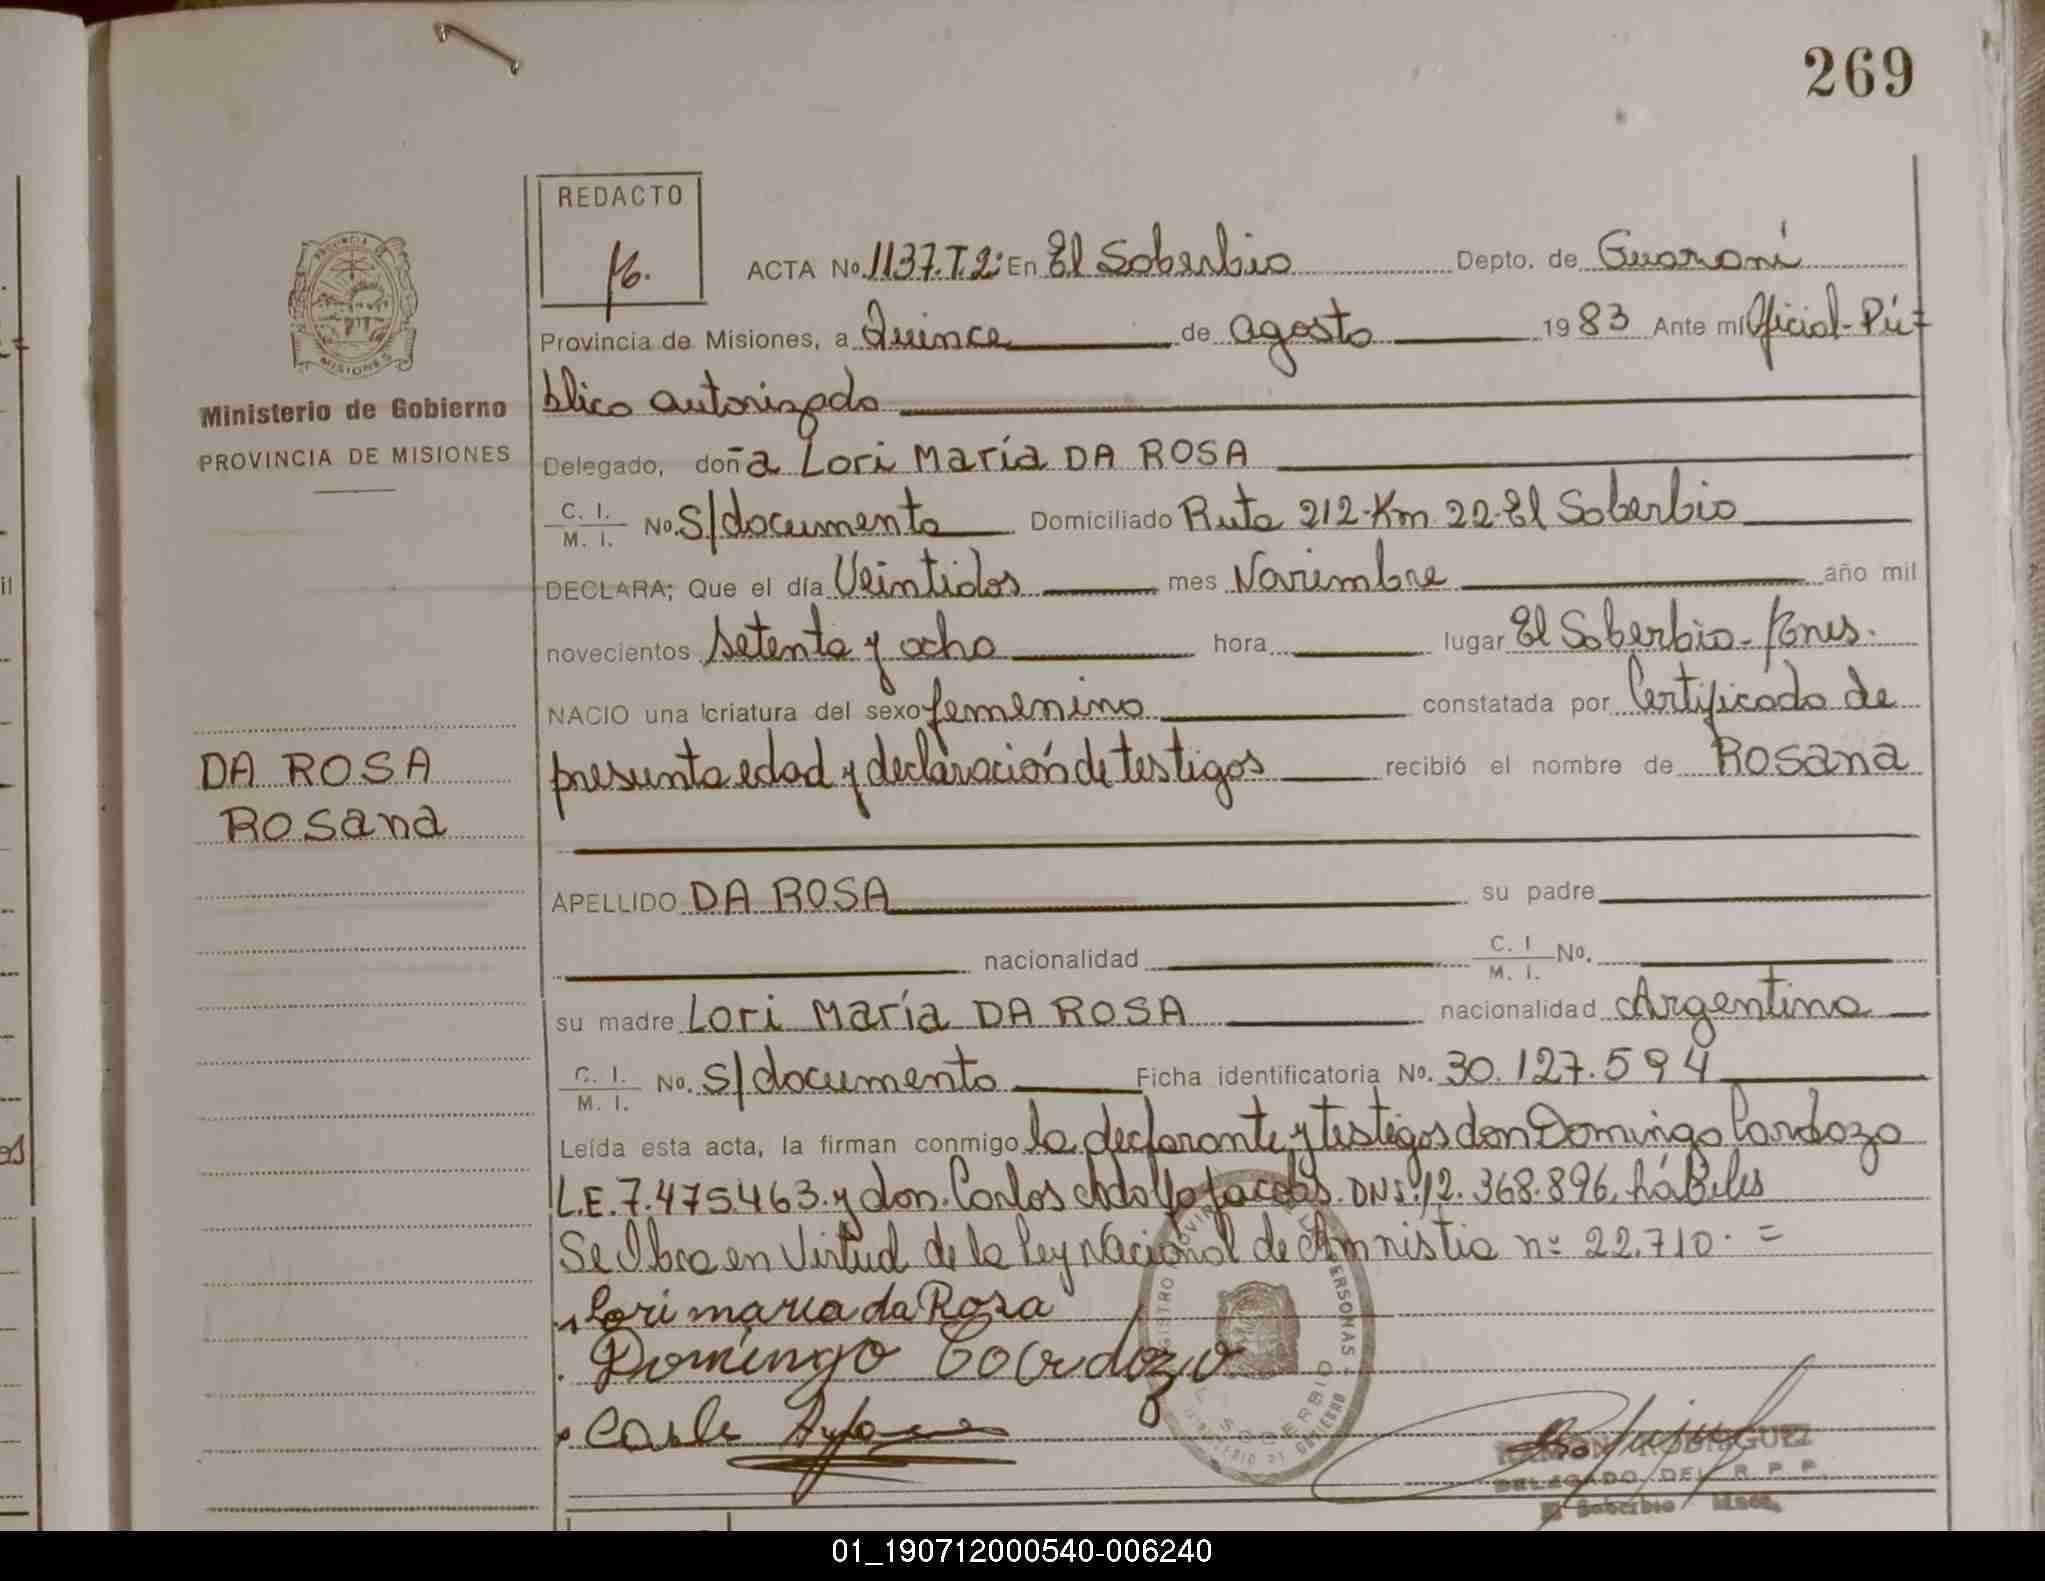 269
REDACTO
f6.
ACTA No. 1137.T.2º En El Soberbio Depto. de Guaraní
Provincia de Misiones, a Quince de agosto 1983 Ante mí Oficial-Pú-
blico autorizado
MISIONES
Ministerio de Gobierno
PROVINCIA DE MISIONES
Delegado, doña Lori María DA ROSA
C. I. M. I. No. S/documento Domiciliado Ruta 212-Km 22-El Soberbio
DECLARA; Que el día Veintidos mes Noviembre año mil
novecientos setenta y ocho hora lugar El Soberbio-
NACIO una criatura del sexo femenino constatada por Certificado de
presunta edad y declaración de testigos recibió el nombre de Rosana
DA ROSA
Rosana
APELLIDO DA ROSA su padre
nacionalidad C. I. M. I. No.
su madre Lori María DA ROSA nacionalidad Argentina
C. I. M. I. No. S/documento Ficha identificatoria No. 30.127.594
Leída esta acta, la firman conmigo la declarante y testigos don Domingo Cardozo
L.E. 7.475.463. y don. Carlos Adolfo Jacobs. DNI. 12.368.896. hábiles
Se Obra en Virtud de la Ley Nacional de Amnistia nº 22.710. =
Lori maria da Rosa
Domingo Cordozo
RAMON RODRIGUEZ
DELEGADO DEL R. P. P.
El Soberbio Mnes.
01_190712000540-006240